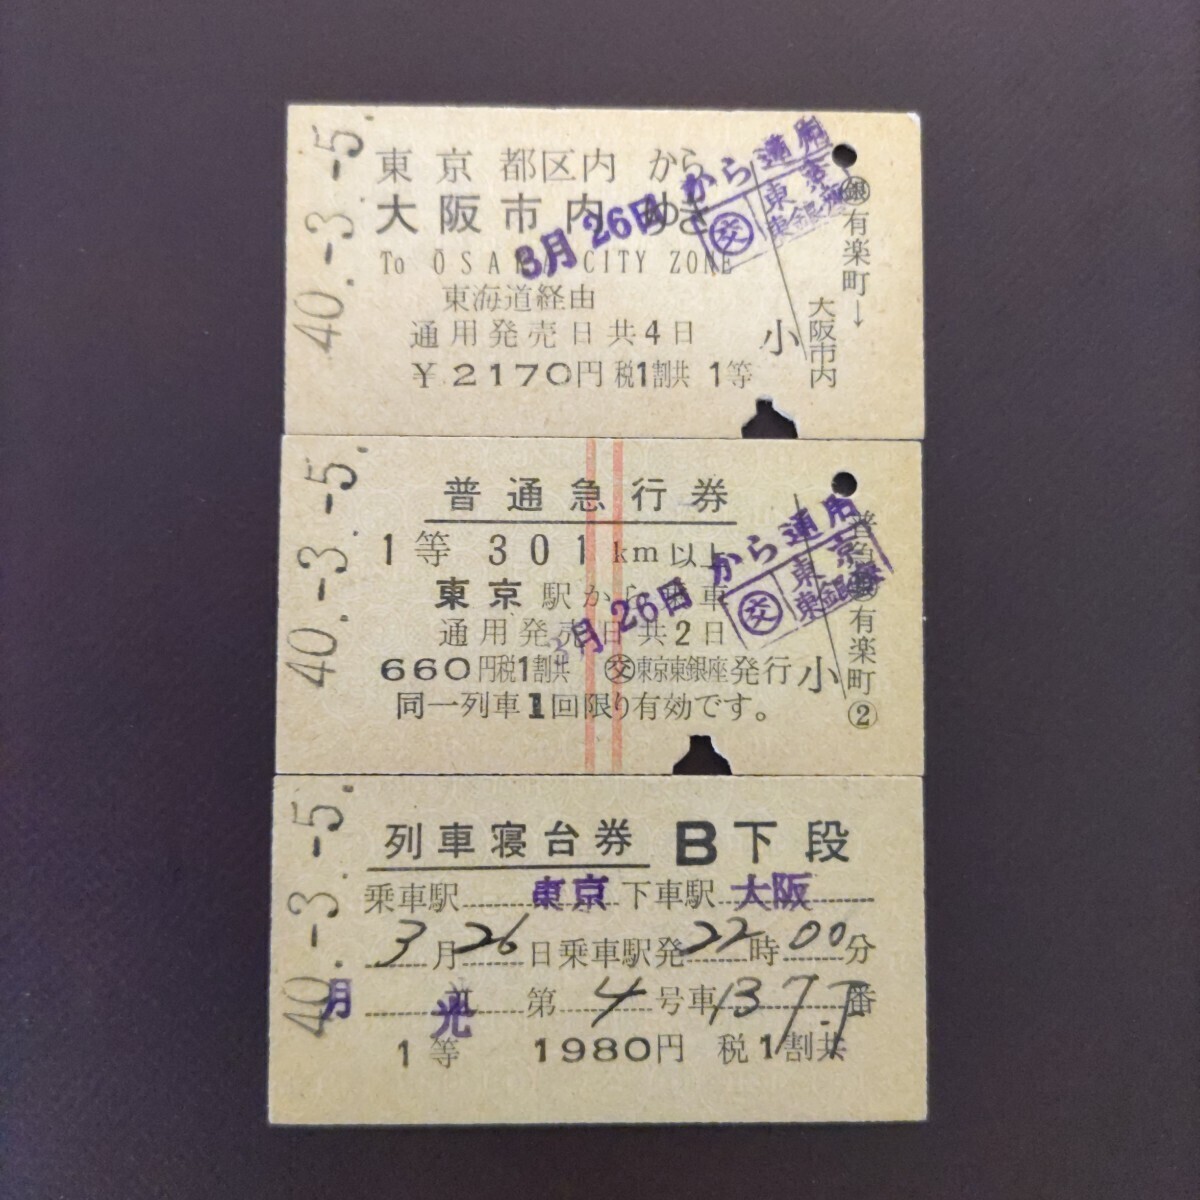 40.-3.-5.
東京都区内から
大阪市内ゆき
To ŌSAKA CITY ZONE
東海道経由
通用発売日共4日
¥2170円 税1割共 1等
3月26日から通用
交 東京
東銀座
小
銀 有楽町→
大阪市内
40.-3.-5.
普通急行券
1等 301km以上
東京駅から乗車
通用発売日共2日
660円税1割共 交東京東銀座発行
同一列車1回限り有効です。
3月26日から通用
交 東京
東銀座
小
有楽町 2
40.-3.-5.
列車寝台券 B下段
乗車駅 東京 下車駅 大阪
3月26日乗車駅発22時00分
月光 第4号車13 下番
1等 1980円 税1割共